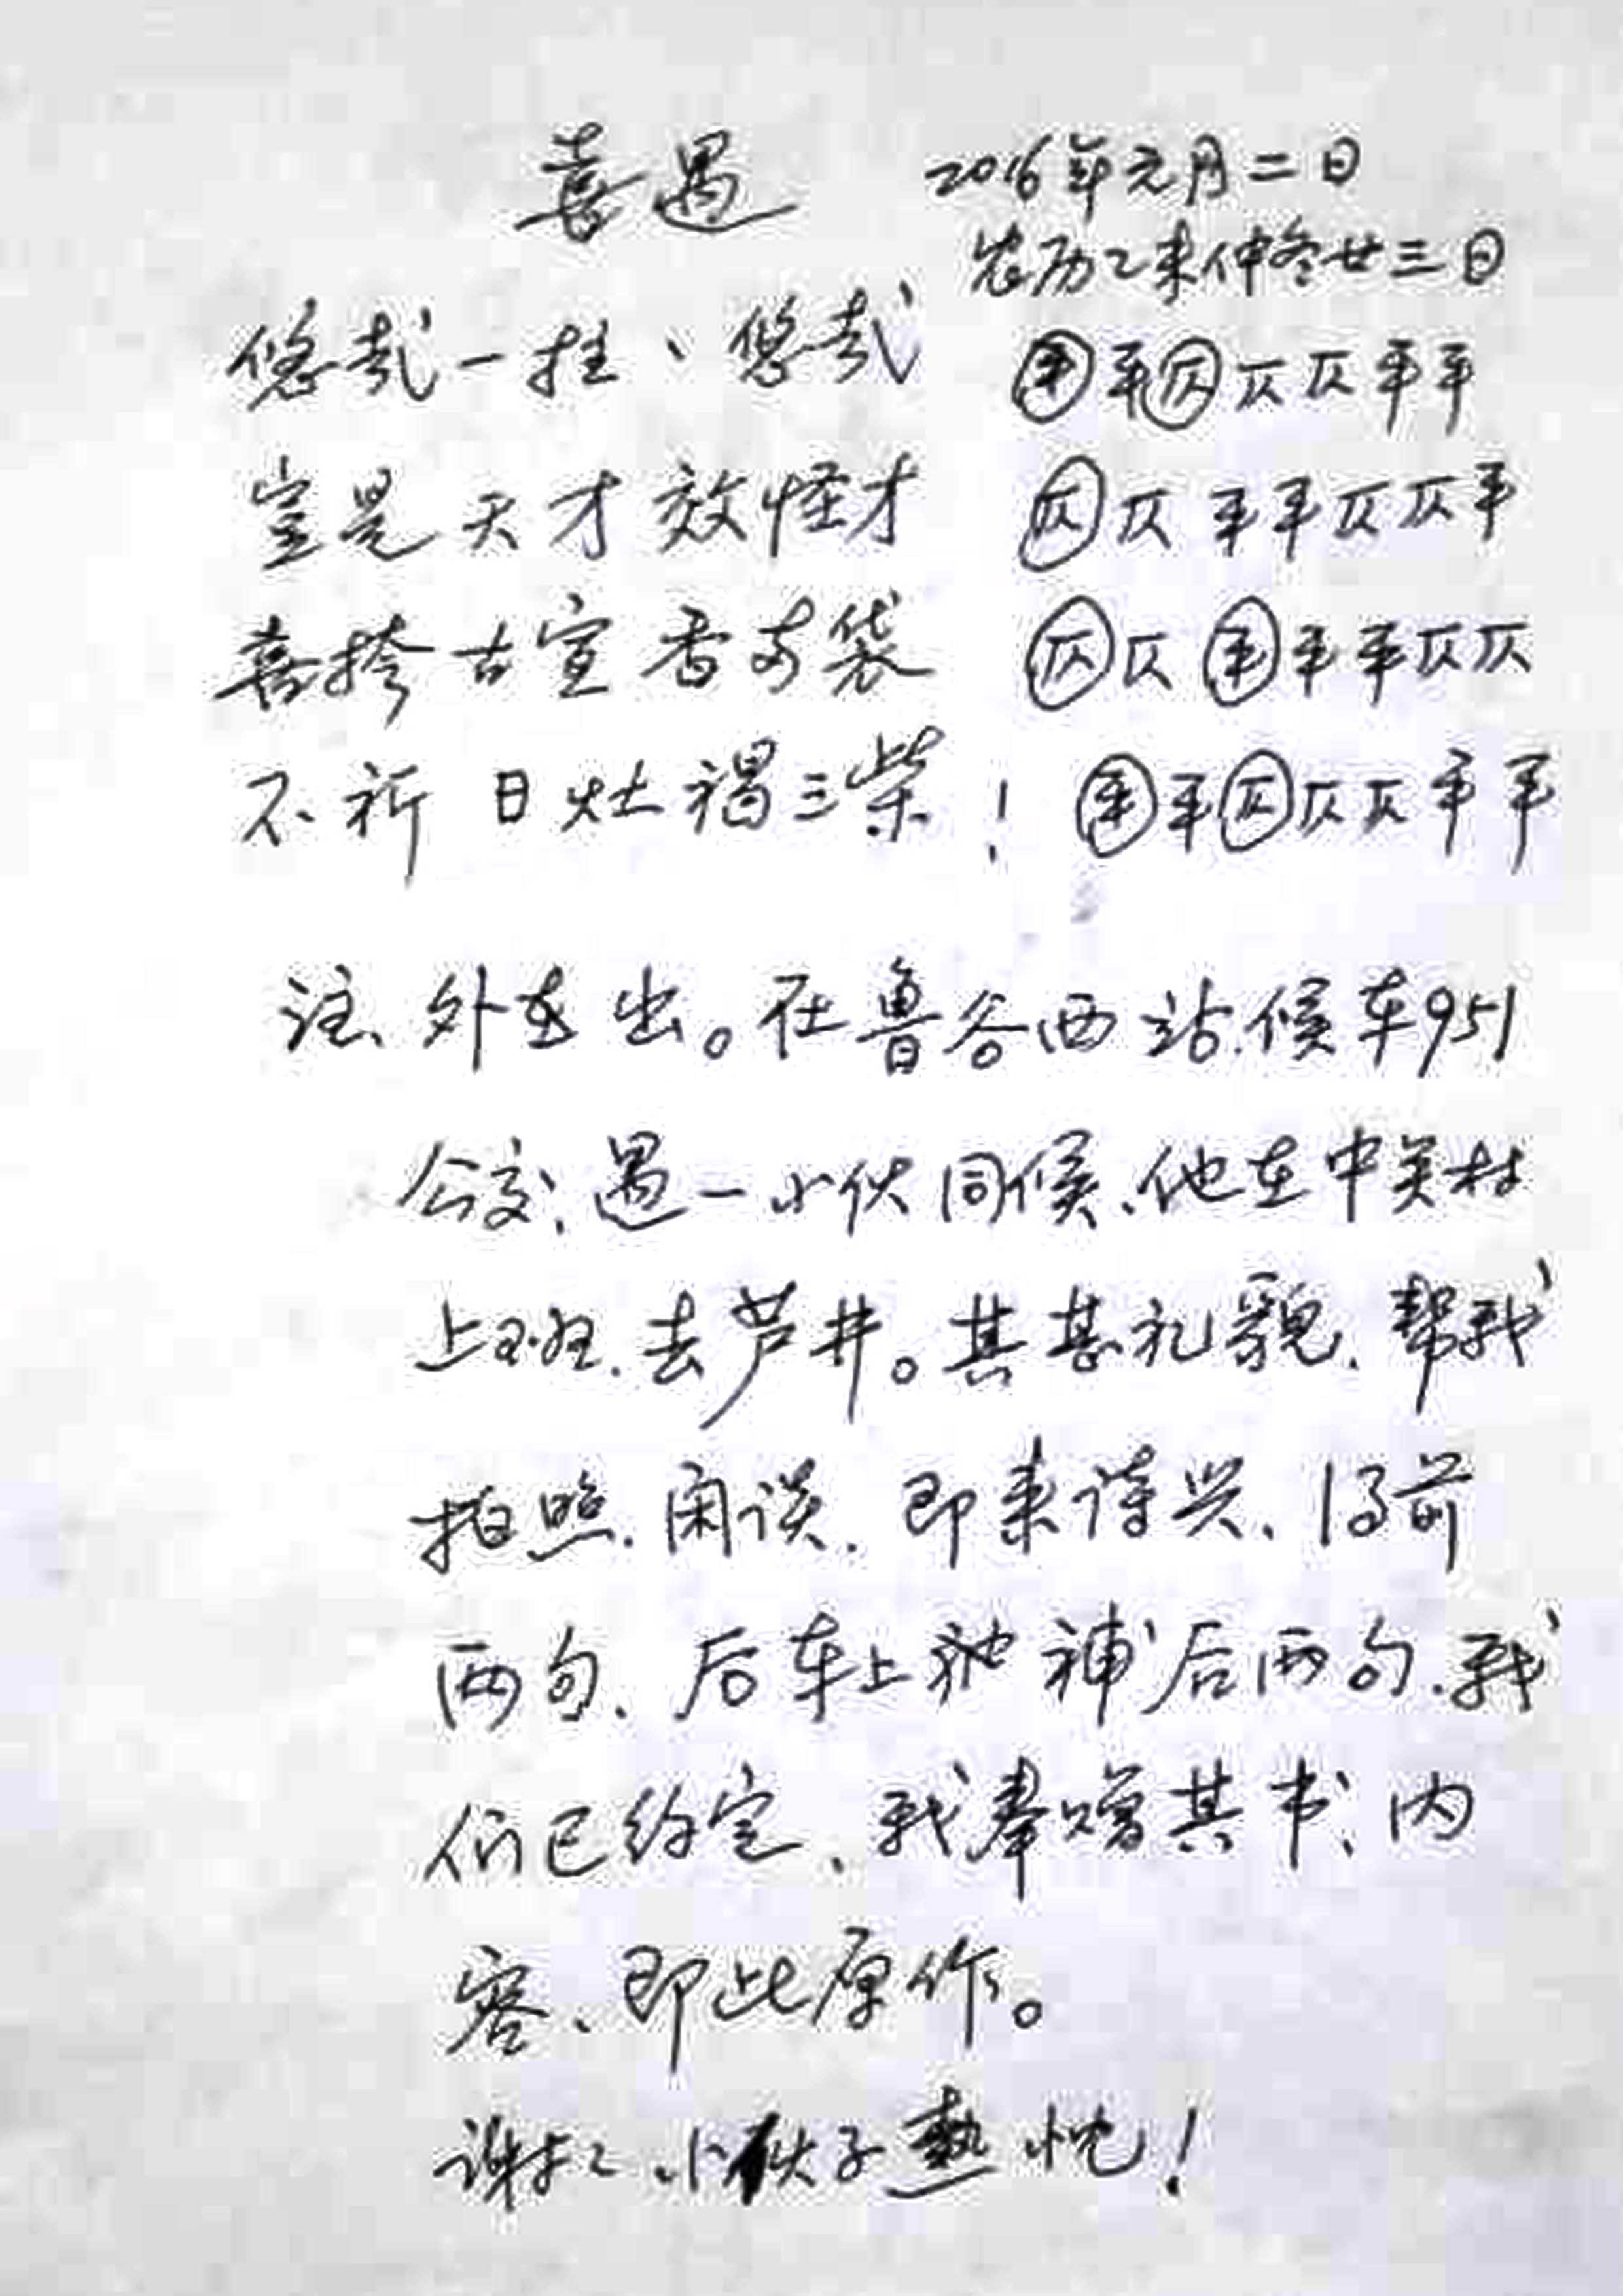 喜遇 2016年元月二日
农历乙未仲冬廿三日
悠哉一拄、悠哉 平平仄仄仄平平
岂是天才效怪才 仄仄平平仄仄平
喜挎古宣香可袋 仄仄平平平仄仄
不祈日灶褐三柴! 平平仄仄仄平平
注、外出。在鲁谷西站.候车951
公交、遇一小伙同候、他在中关村
上班.去芦井。其甚礼貌.帮我
拍照.闲谈.即来诗兴、得前
两句、后车上他补后两句.我
们已约定、我奉赠其书、内
容、即此原作。
谢小伙子热忱!